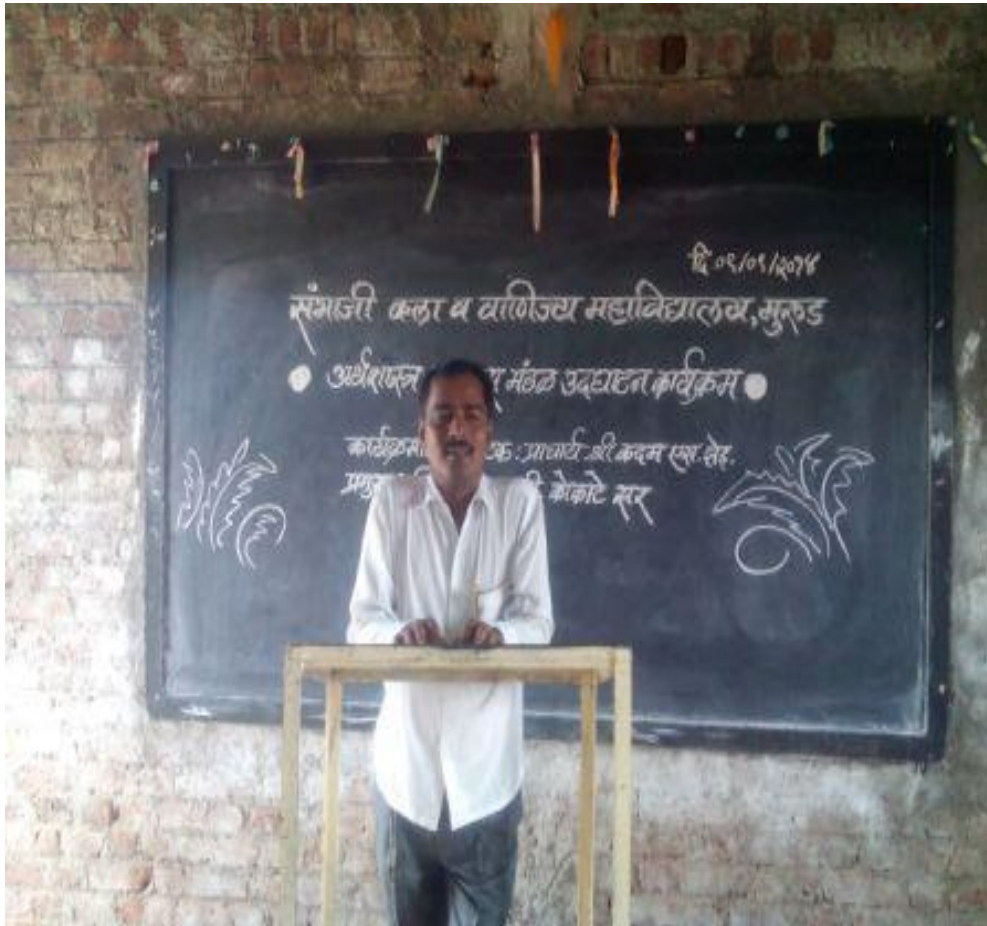 दि ०९/०९/२०१४
संभाजी कला व वाणिज्य महाविद्यालय, मुरुड
अर्थशास्त्र मंडळ उद्घाटन कार्यक्रम
प्राचार्य श्री कदम एस. झेड.
कोकाटे सर